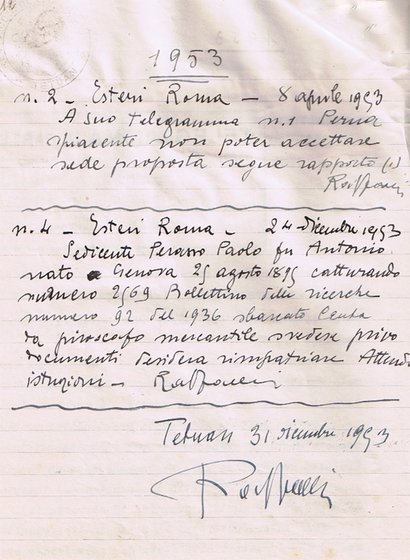 12
1953
n. 2 - Esteri Roma - 8 aprile 1953
A suo telegramma n. 1 Perna
spiacente non poter accettare
sede proposta segue rapporto (1)
n. 4 - Esteri Roma - 24 dicembre 1953
Sedicente Perasso Paolo fu Antonio
nato a Genova 25 agosto 1895 catturando
numero 2569 Bollettino delle ricerche
numero 92 del 1936 sbarcato Ceuta
da piroscafo mercantile svedese privo
documenti desidera rimpatriare Attendo
istruzioni -
Tetuan 31 dicembre 1953